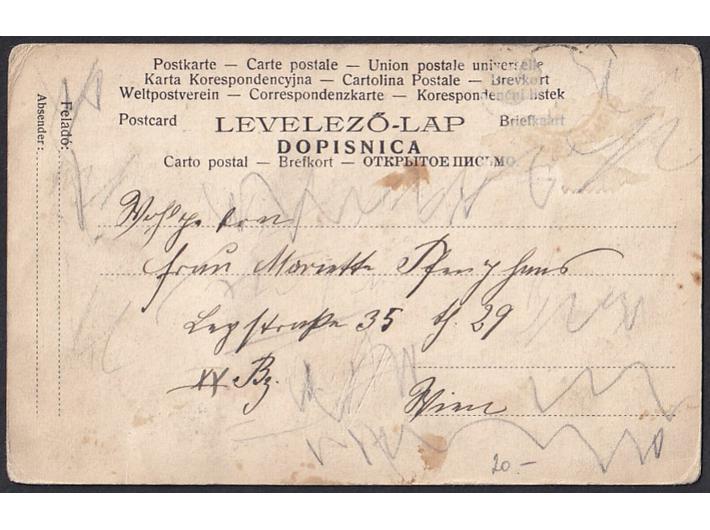 Postkarte — Carte postale — Union postale universelle
Karta Korespondencyjna — Cartolina Postale — Brevkort
Weltpostverein — Correspondenzkarte — Korespondenční listek
Postcard LEVELEZŐ-LAP Briefkaart
DOPISNICA
Carto postal — Brefkort — ОТКРЫТОЕ ПИСЬМО
Feladó:
Absender:
Frau Mariette
35 th. 29
XX Bz.
Wien
20.-